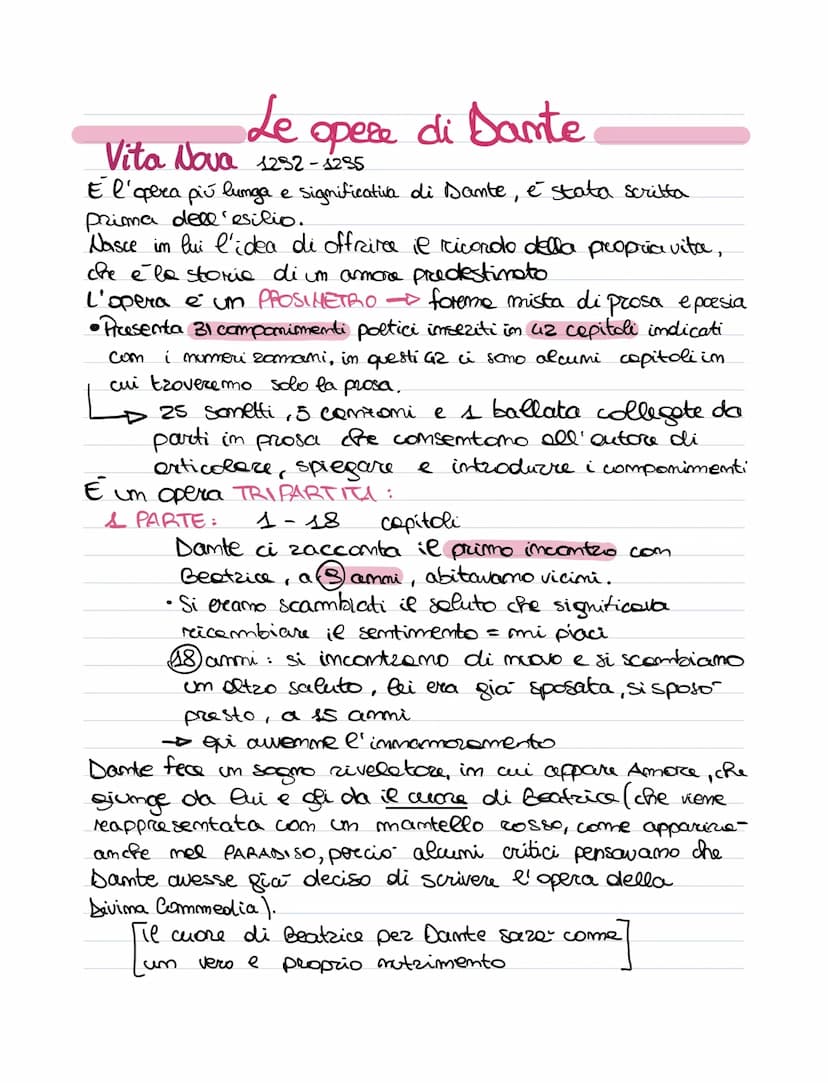 Le opere di Dante
Vita Nova 1292-1295
È l'opera più lunga e significativa di Dante, è stata scritta
prima dell'esilio.
Nasce in lui l'idea di offrire il ricordo della propria vita,
che è la storia di un amore predestinato
L'opera è un PROSIMETRO → forma mista di prosa e poesia
• Presenta 31 componimenti poetici inseriti in 42 capitoli indicati
con i numeri romani, in questi 42 ci sono alcuni capitoli in
cui troveremo solo la prosa.
→ 25 sonetti, 5 canzoni e 1 ballata collegate da
parti in prosa che consentono all'autore di
articolare, spiegare e introdurre i componimenti
È un opera TRIPARTITA:
1 PARTE: 1-18 capitoli
Dante ci racconta il primo incontro con
Beatrice, a 9 anni, abitavano vicini.
• Si erano scambiati il saluto che significava
ricambiare il sentimento = mi piaci
18 anni: si incontrano di nuovo e si scambiano
un altro saluto, lei era già sposata, si sposò
presto, a 15 anni
→ qui avvenne l'innamoramento
Dante fece un sogno rivelatore, in cui appare Amore, che
giunge da lui e gli da il cuore di Beatrice (che viene
reappresentata con un mantello rosso, come apparirà
anche nel PARADISO, perciò alcuni critici pensavano che
Dante avesse già deciso di scrivere l'opera della
Divina Commedia).
[il cuore di Beatrice per Dante sarà come
un vero e proprio nutrimento]